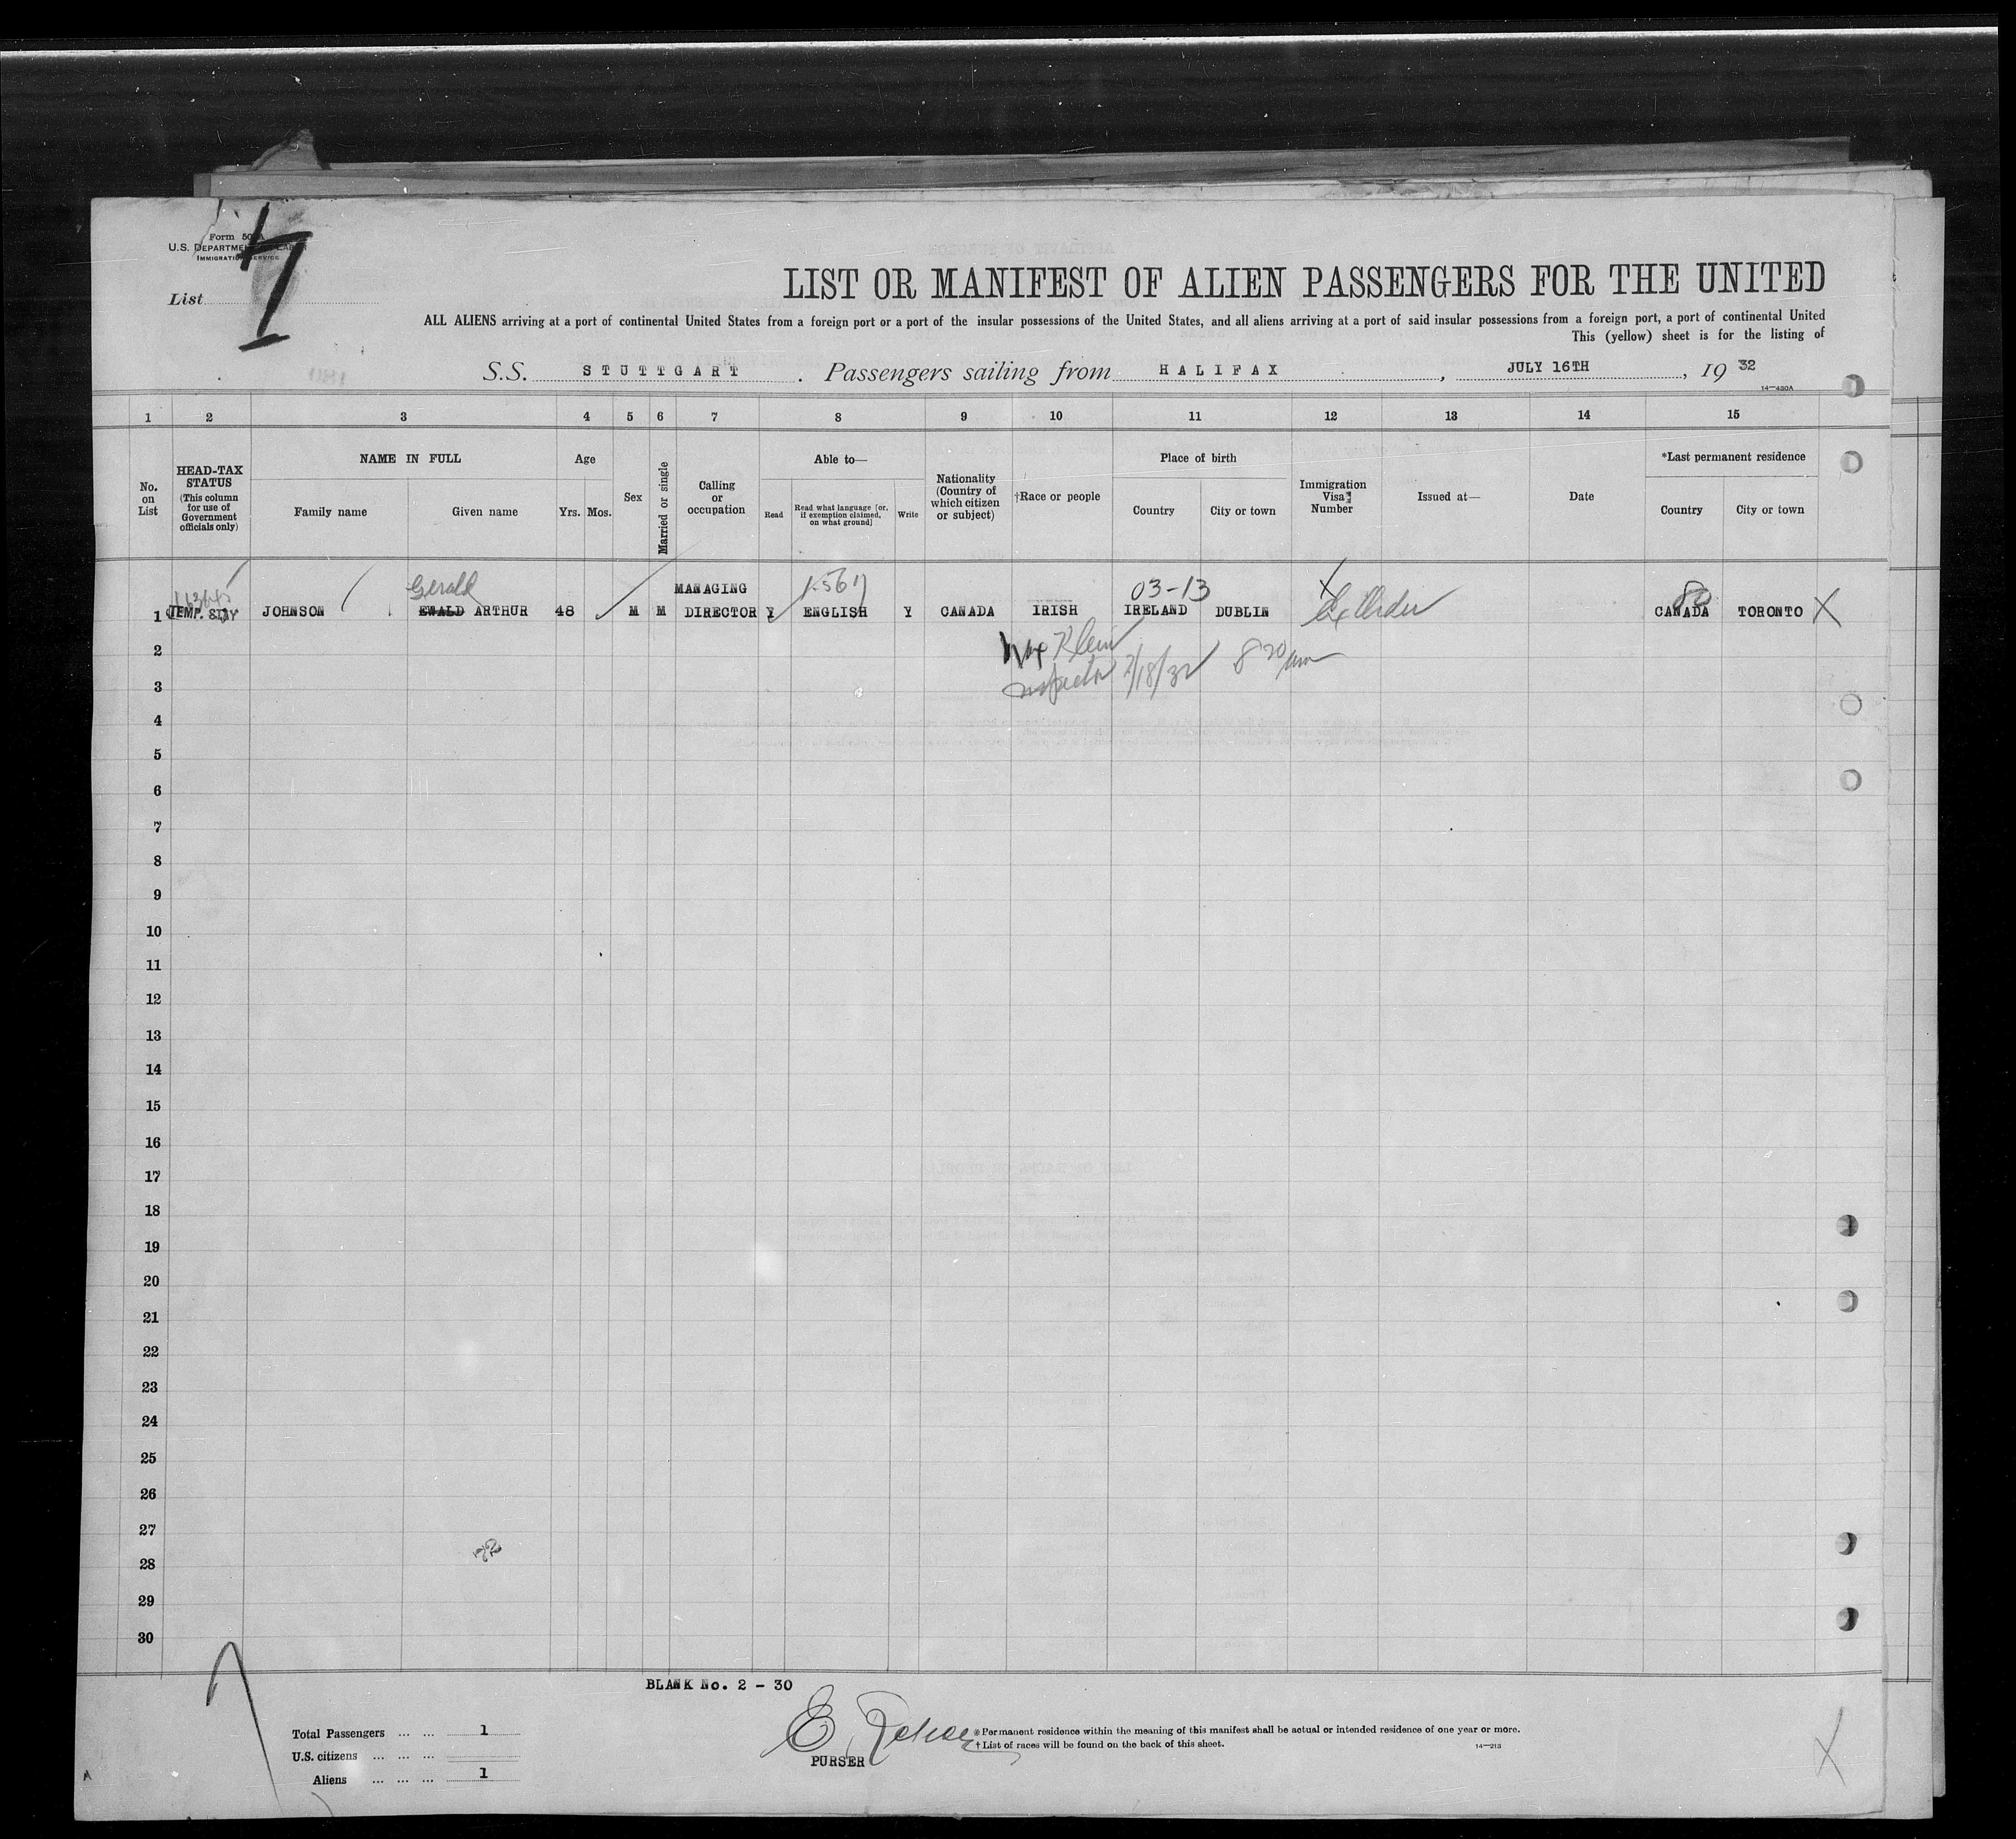 Form 500 A
U.S. DEPARTMENT OF LABOR
IMMIGRATION SERVICE
List
LIST OR MANIFEST OF ALIEN PASSENGERS FOR THE UNITED
ALL ALIENS arriving at a port of continental United States from a foreign port or a port of the insular possessions of the United States, and all aliens arriving at a port of said insular possessions from a foreign port, a port of continental United
This (yellow) sheet is for the listing of
S.S. STUTTGART. Passengers sailing from HALIFAX, JULY 16TH, 19 32
14—480A
1 2 3 4 5 6 7 8 9 10 11 12 13 14 15
No. on List
HEAD-TAX STATUS (This column for use of Government officials only)
NAME IN FULL
Family name
Given name
Age
Yrs. Mos.
Sex
Married or single
Calling or occupation
Able to—
Read
Read what language [or, if exemption claimed, on what ground]
Write
Nationality (Country of which citizen or subject)
†Race or people
Place of birth
Country
City or town
Immigration Visa Number
Issued at—
Date
*Last permanent residence
Country
City or town
Gerald MANAGING 03-13 80
1 TEMP. STAY JOHNSON EWALD ARTHUR 48 M M DIRECTOR Y ENGLISH Y CANADA IRISH IRELAND DUBLIN Ex Order CANADA TORONTO X
2 Klein
3 Inspector 7/18/32 8 20 am
4
5
6
7
8
9
10
11
12
13
14
15
16
17
18
19
20
21
22
23
24
25
26
27
28
29
30
BLANK No. 2 - 30
Total Passengers ... ... 1
U.S. citizens ... ... ...
Aliens ... ... ... 1
E.
PURSER
*Permanent residence within the meaning of this manifest shall be actual or intended residence of one year or more.
†List of races will be found on the back of this sheet.
14—213